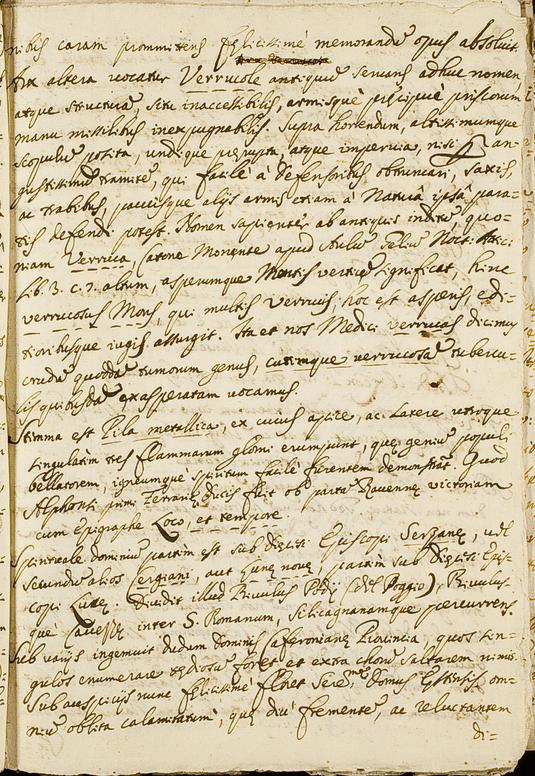 nibus caram promittens felicissimè memorandū opus absoluit.
Arx altera vocatur Verrucole antiquū servans adhuc nomen
atque structurā, situ inaccessibilis, armisque præcipuè priscorum
manu missilibus inexpugnabilis. Supra horrendum, altissimumque
scopulū posita, undique prærupta, atque impervia, nisi an-
gustissimū tramitē, qui facilè à defensoribus obtruncari, saxis,
ac trabibus, paucisque alijs armis etiam à Naturâ ipsâ para-
tis defendi potest. Nomen sapienter ab antiquis inditū, quo-
niam Verruca, Catone Monente apud Aulū Gelliū Noct. Attic:
Lib. 3. c. 7. altum, asperumque Montis verticē significat, hinc
verrucosus Mons, qui multis verrucis, hoc est asperis, edi-
tioribusque iugis assurgit. Ita et nos Medici verrucas dicimus
crudū quoddā tumorum genus, cutimque verrucosā tubercu-
lis quibusdā exasperatam vocamus.
Stemma est Pila metallica, ex cuius apice, ac Latere utroque
singulatim tres flammarum globi erumpunt, quę genius populi
bellatorem, igneumque spiritum facilè ferentem demonstrāt. Quod
Alphonsi primi Ferrarię Ducis fuit ob partā Ravennę victoriam
cum Epigraphe Loco, et tempore.
Spirituale dominiū partim est sub Episcopi Serzanę, vel
secundū alios Sergiani, aut Lunę novę, partim sub Epis-
copi Lucę. Dividit illud Rivulus (del Poggio), Rivulus-
què inter S. Romanum, Silicagnanamque percurrens.
Sub varijs ingemuit dudum Dominis Caferonianę Provincia, quos sin-
gulos enumerare tediosū foret et extra chorū saltarem nimis.
Sub auspicijs nunc felicissimè floret Serē.mę Domus Estensis om-
niū oblita calamitatum, quę diù frementē, ac reluctantem
di=